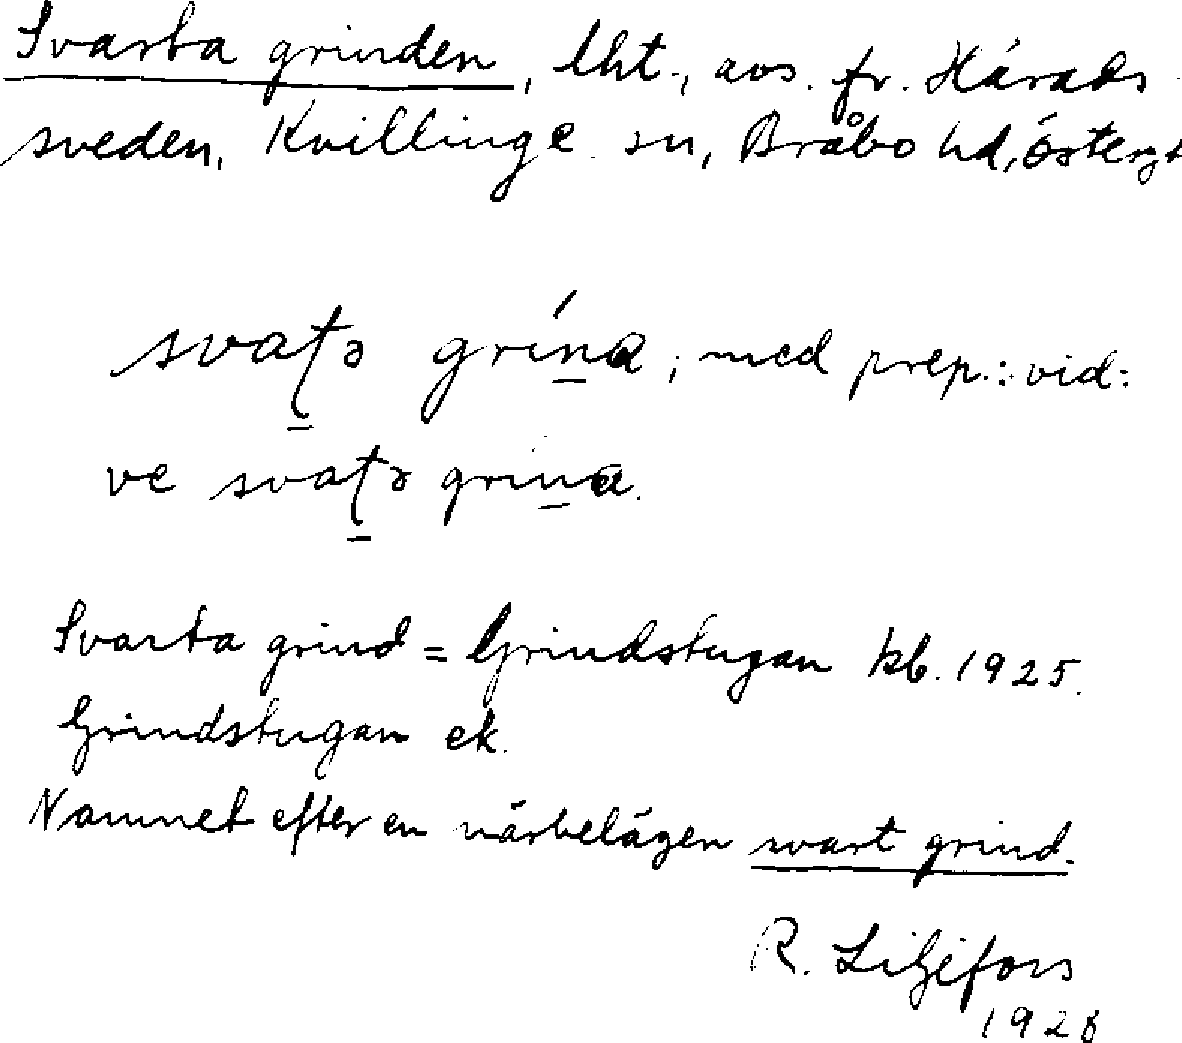 Svarta grinden, lht., avs. fr. Härads-
sveden, Kvillinge sn, Bråbo hd, Östergt
svaʈə grína; med prep.: vid:
ve svaʈə grina.
Svarta grind = Grindstugan kb. 1925.
Grindstugan ek.
Namnet efter en närbelägen svart grind.
R. Liljefors
1926